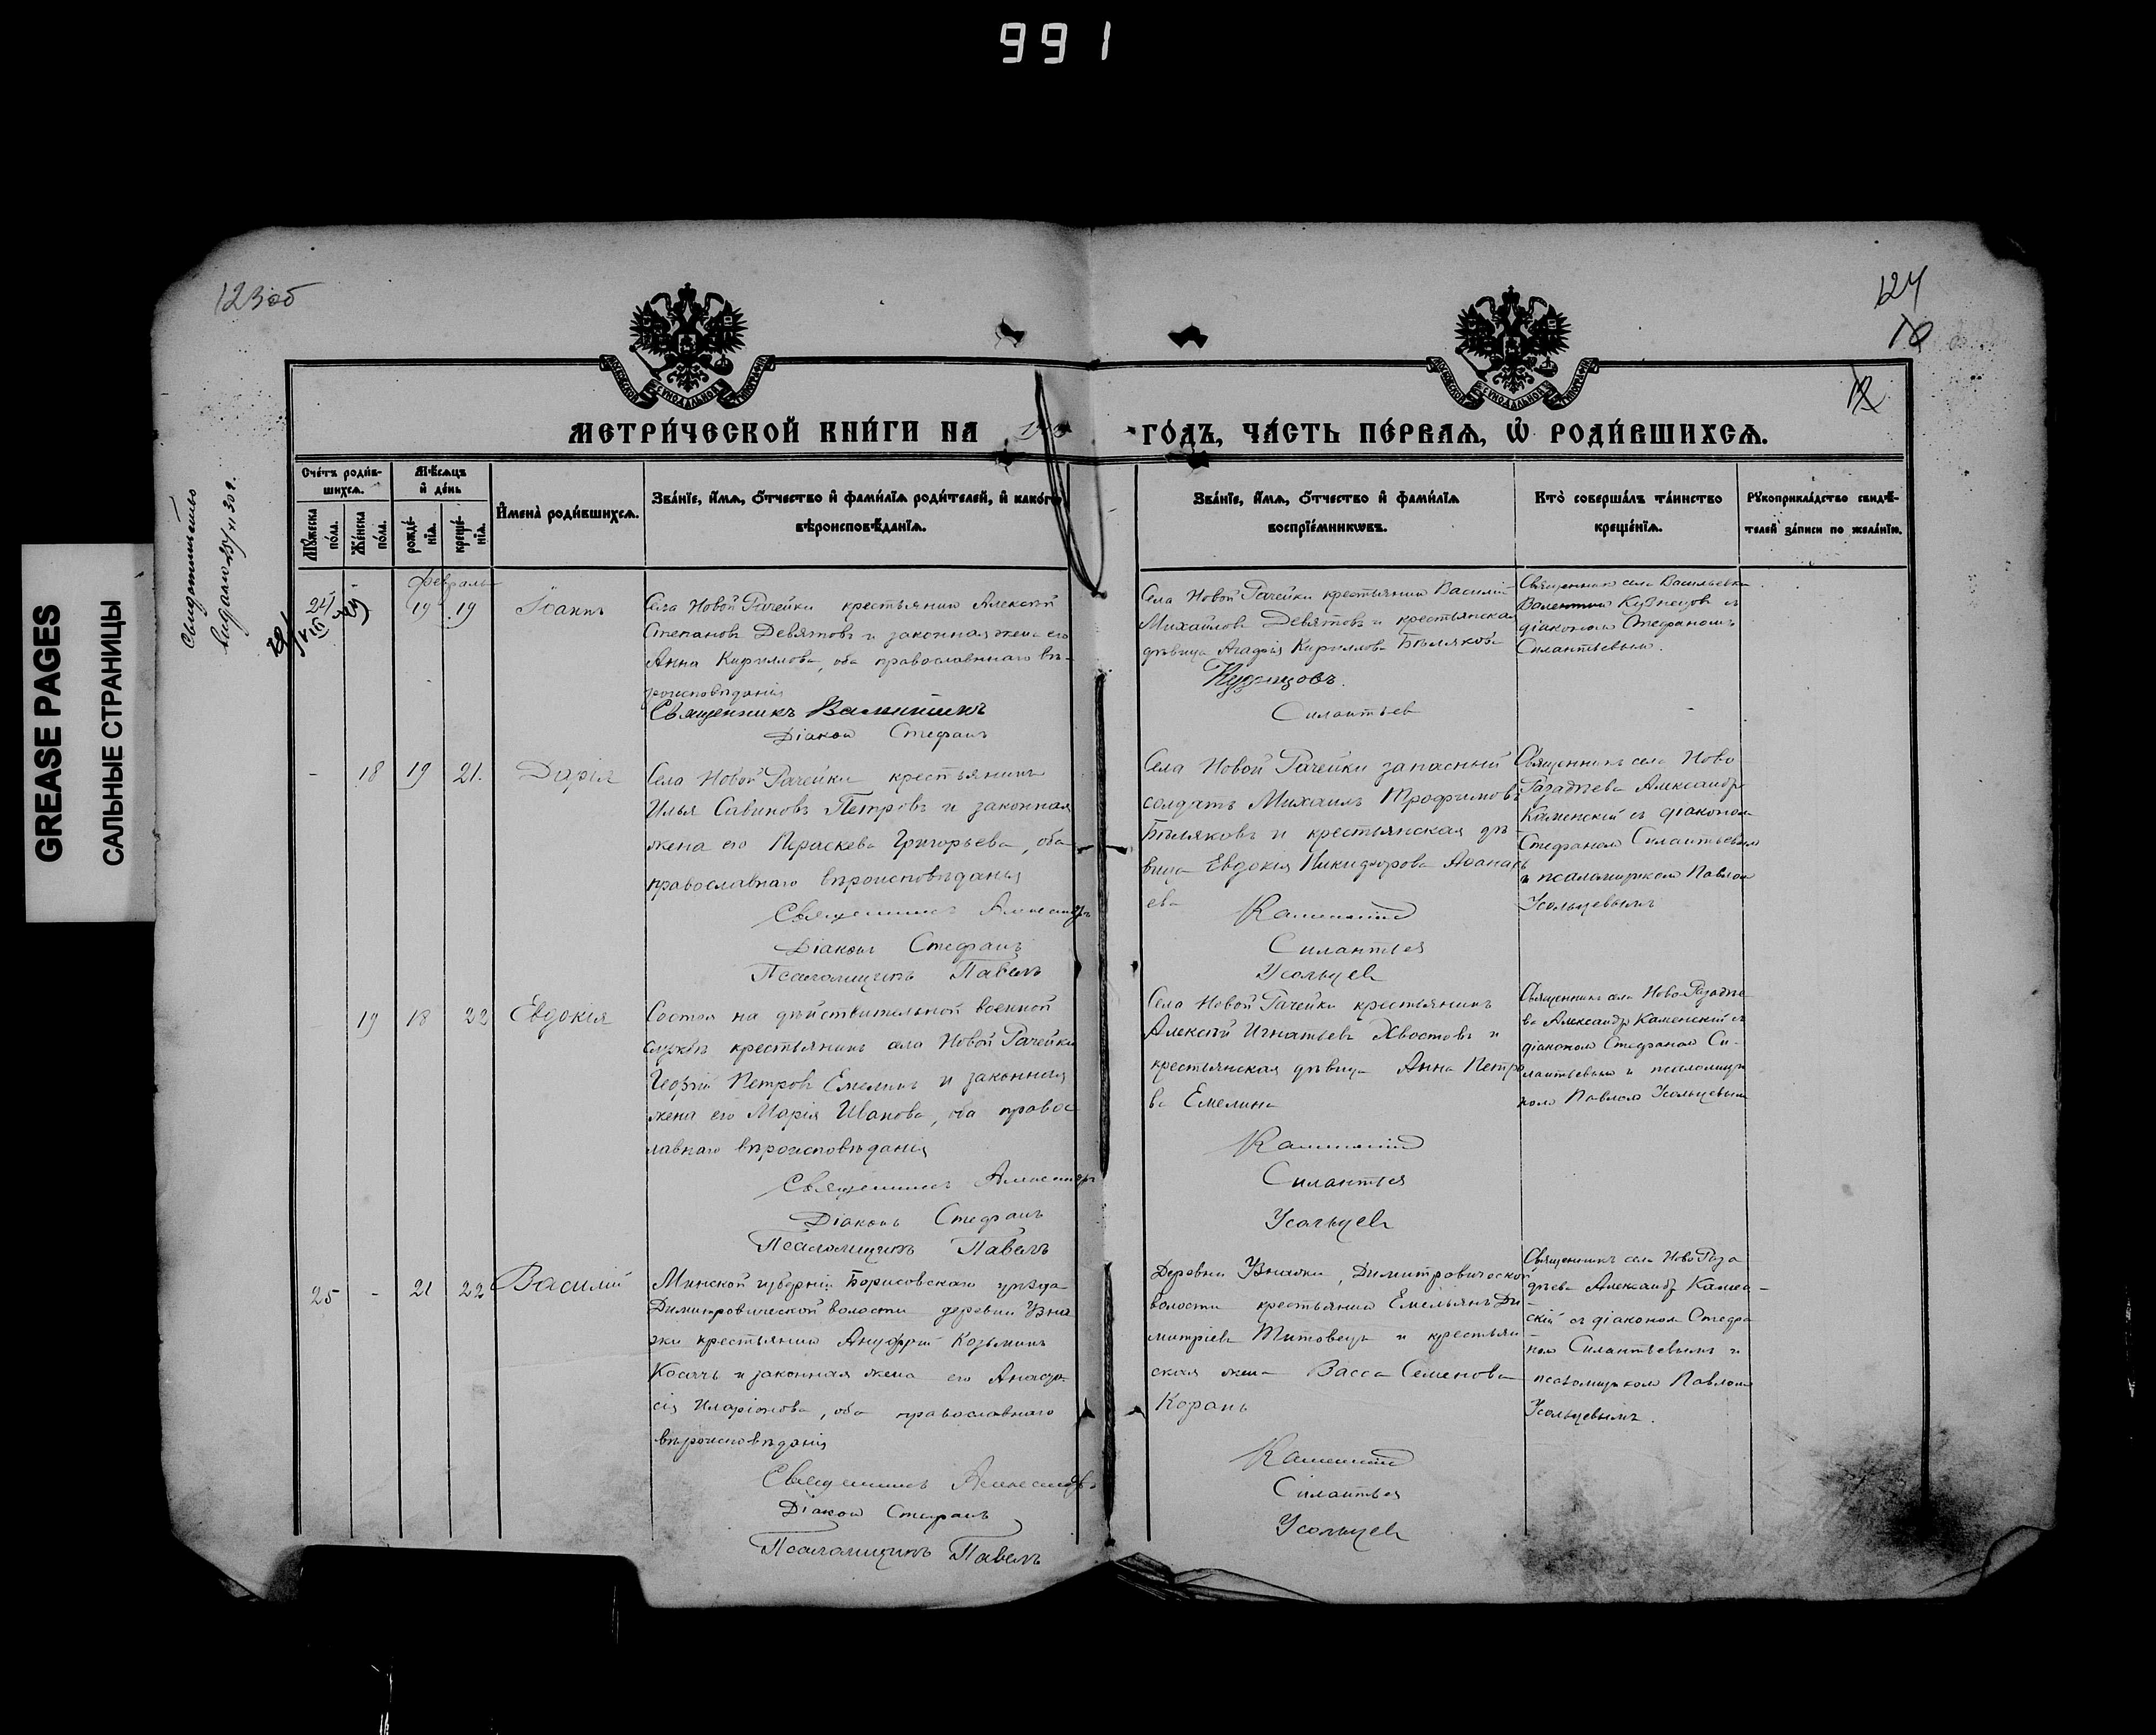 991
GREASE PAGES
САЛЬНЫЕ СТРАНИЦЫ
123 об
124
10
12
МЕТРИ́ЧЕСКОЙ КНИ́ГИ НА
ГО́ДЪ, ЧА́СТЬ ПЕ́РВАѦ, Ѡ҆ РОДИ́ВШИХСѦ.
Сче́тъ роди́в-
шихсѧ.
Мѣ́сѧцъ
и҆ де́нь
Мꙋ́жеска по́ла.
Же́нска по́ла.
рожде́-
нїѧ.
креще́-
нїѧ.
И҆мена̀ роди́вшихсѧ.
Зва́нїе, и҆́мѧ, ѻ҆́тчество и҆ фами́лїѧ роди́телей, и҆ како́гѡ
вѣроисповѣ́данїѧ.
Зва́нїе, и҆́мѧ, ѻ҆́тчество и҆ фами́лїѧ
воспрїе́мникѡвъ.
Кто̀ соверша́лъ та́инство
креще́нїѧ.
Рꙋкоприкла́дство свидѣ́-
телей за́писи по жела́нїю.
Свидетельство
выдано
февраль
24
-
19
19
Іоаннъ
Села Новой Рачейки крестьянин Алексѣй
Степановъ Девятовъ и законная жена его
Анна Кириллова, оба православнаго вѣ-
роисповѣданія
Священникъ Валентинъ
Діакон Стефанъ
Села Новой Рачейки крестьянин Василій
Михайловъ Девятовъ и крестьянская
дѣвица Агафія Кириллова Бѣлякова
Кузнецовъ.
Силантьев
Священникъ села Васильевки
Валентинъ Кузнецовъ съ
діакономъ Стефаномъ
Силантьевымъ.
-
18
19
21.
Дарія
Села Новой Рачейки крестьянинъ
Илья Савиновъ Петровъ и законная
жена его Параскева Григорьева, оба
православнаго вѣроисповѣданія
Священникъ Александръ
Діаконъ Стефанъ
Псаломщикъ Павелъ
Села Новой Рачейки запасный
солдатъ Михаилъ Трофимовъ
Бѣляковъ и крестьянская дѣ-
вица Евдокія Никифорова Афанась
ева
Каменскій
Силантьев
Усольцев
Священникъ села Ново
Александръ
Каменскій съ діаконом
Стефаном Силантьевым
и псаломщиком Павлом
Усольцевымъ
19
18
22
Евдокія
Состоя на дѣйствительной военной
службѣ крестьянинъ села Новой Рачейки
Георгій Петровъ Емелинъ и законная
жена его Марія Иванова, оба правос
лавнаго вѣроисповѣданія
Священникъ Александръ
Діаконъ Стефанъ
Псаломщикъ Павелъ
Села Новой Рачейки крестьянинъ
Алексѣй Игнатьевъ Хвостовъ и
крестьянская дѣвица Анна Петро
ва Емелина
Каменскій
Силантьев
Усольцев
Священникъ села Ново
ва Александръ Каменскій съ
діаконом Стефаном Си-
лантьевым и псаломщи
ком Павлом Усольцевым
25
-
21
22
Василій
Минской губерніи Борисовскаго уѣзда
Димитровической волости деревни Узна
жи крестьянин Ануфрій Козьминъ
Косачъ и законная жена его Анаста-
сія Иларіонова, оба православнаго
вѣроисповѣданія
Священникъ Александръ
Діакон Стефанъ
Псаломщикъ Павелъ
Деревни Узнажи, Димитровической
волости крестьянин Емельянъ Ди-
митріевъ Титовецъ и крестьян
ская жена Васса Семенова
Корань
Каменскій
Силантьев
Усольцев
Священникъ села Ново
Александръ Камен-
скій съ діаконом Стефа-
ном Силантьевымъ и
псаломщиком Павлом
Усольцевымъ.